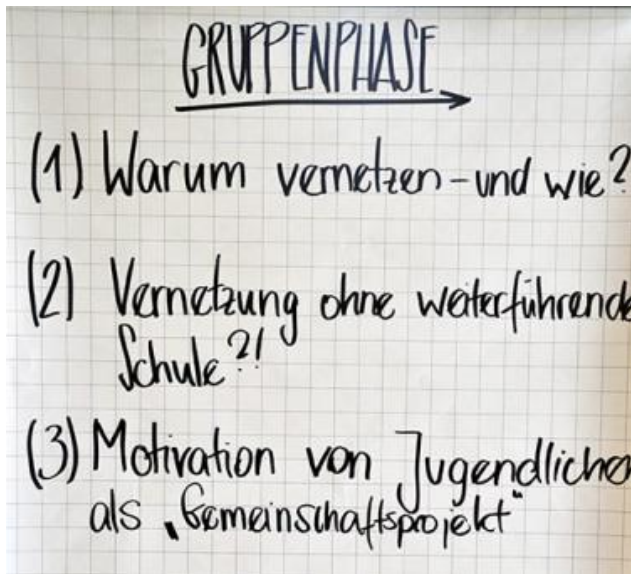 GRUPPENPHASE
(1) Warum vernetzen - und wie?
(2) Vernetzung ohne weiterführende
Schule?!
(3) Motivation von Jugendlichen
als „Gemeinschaftsprojekt“